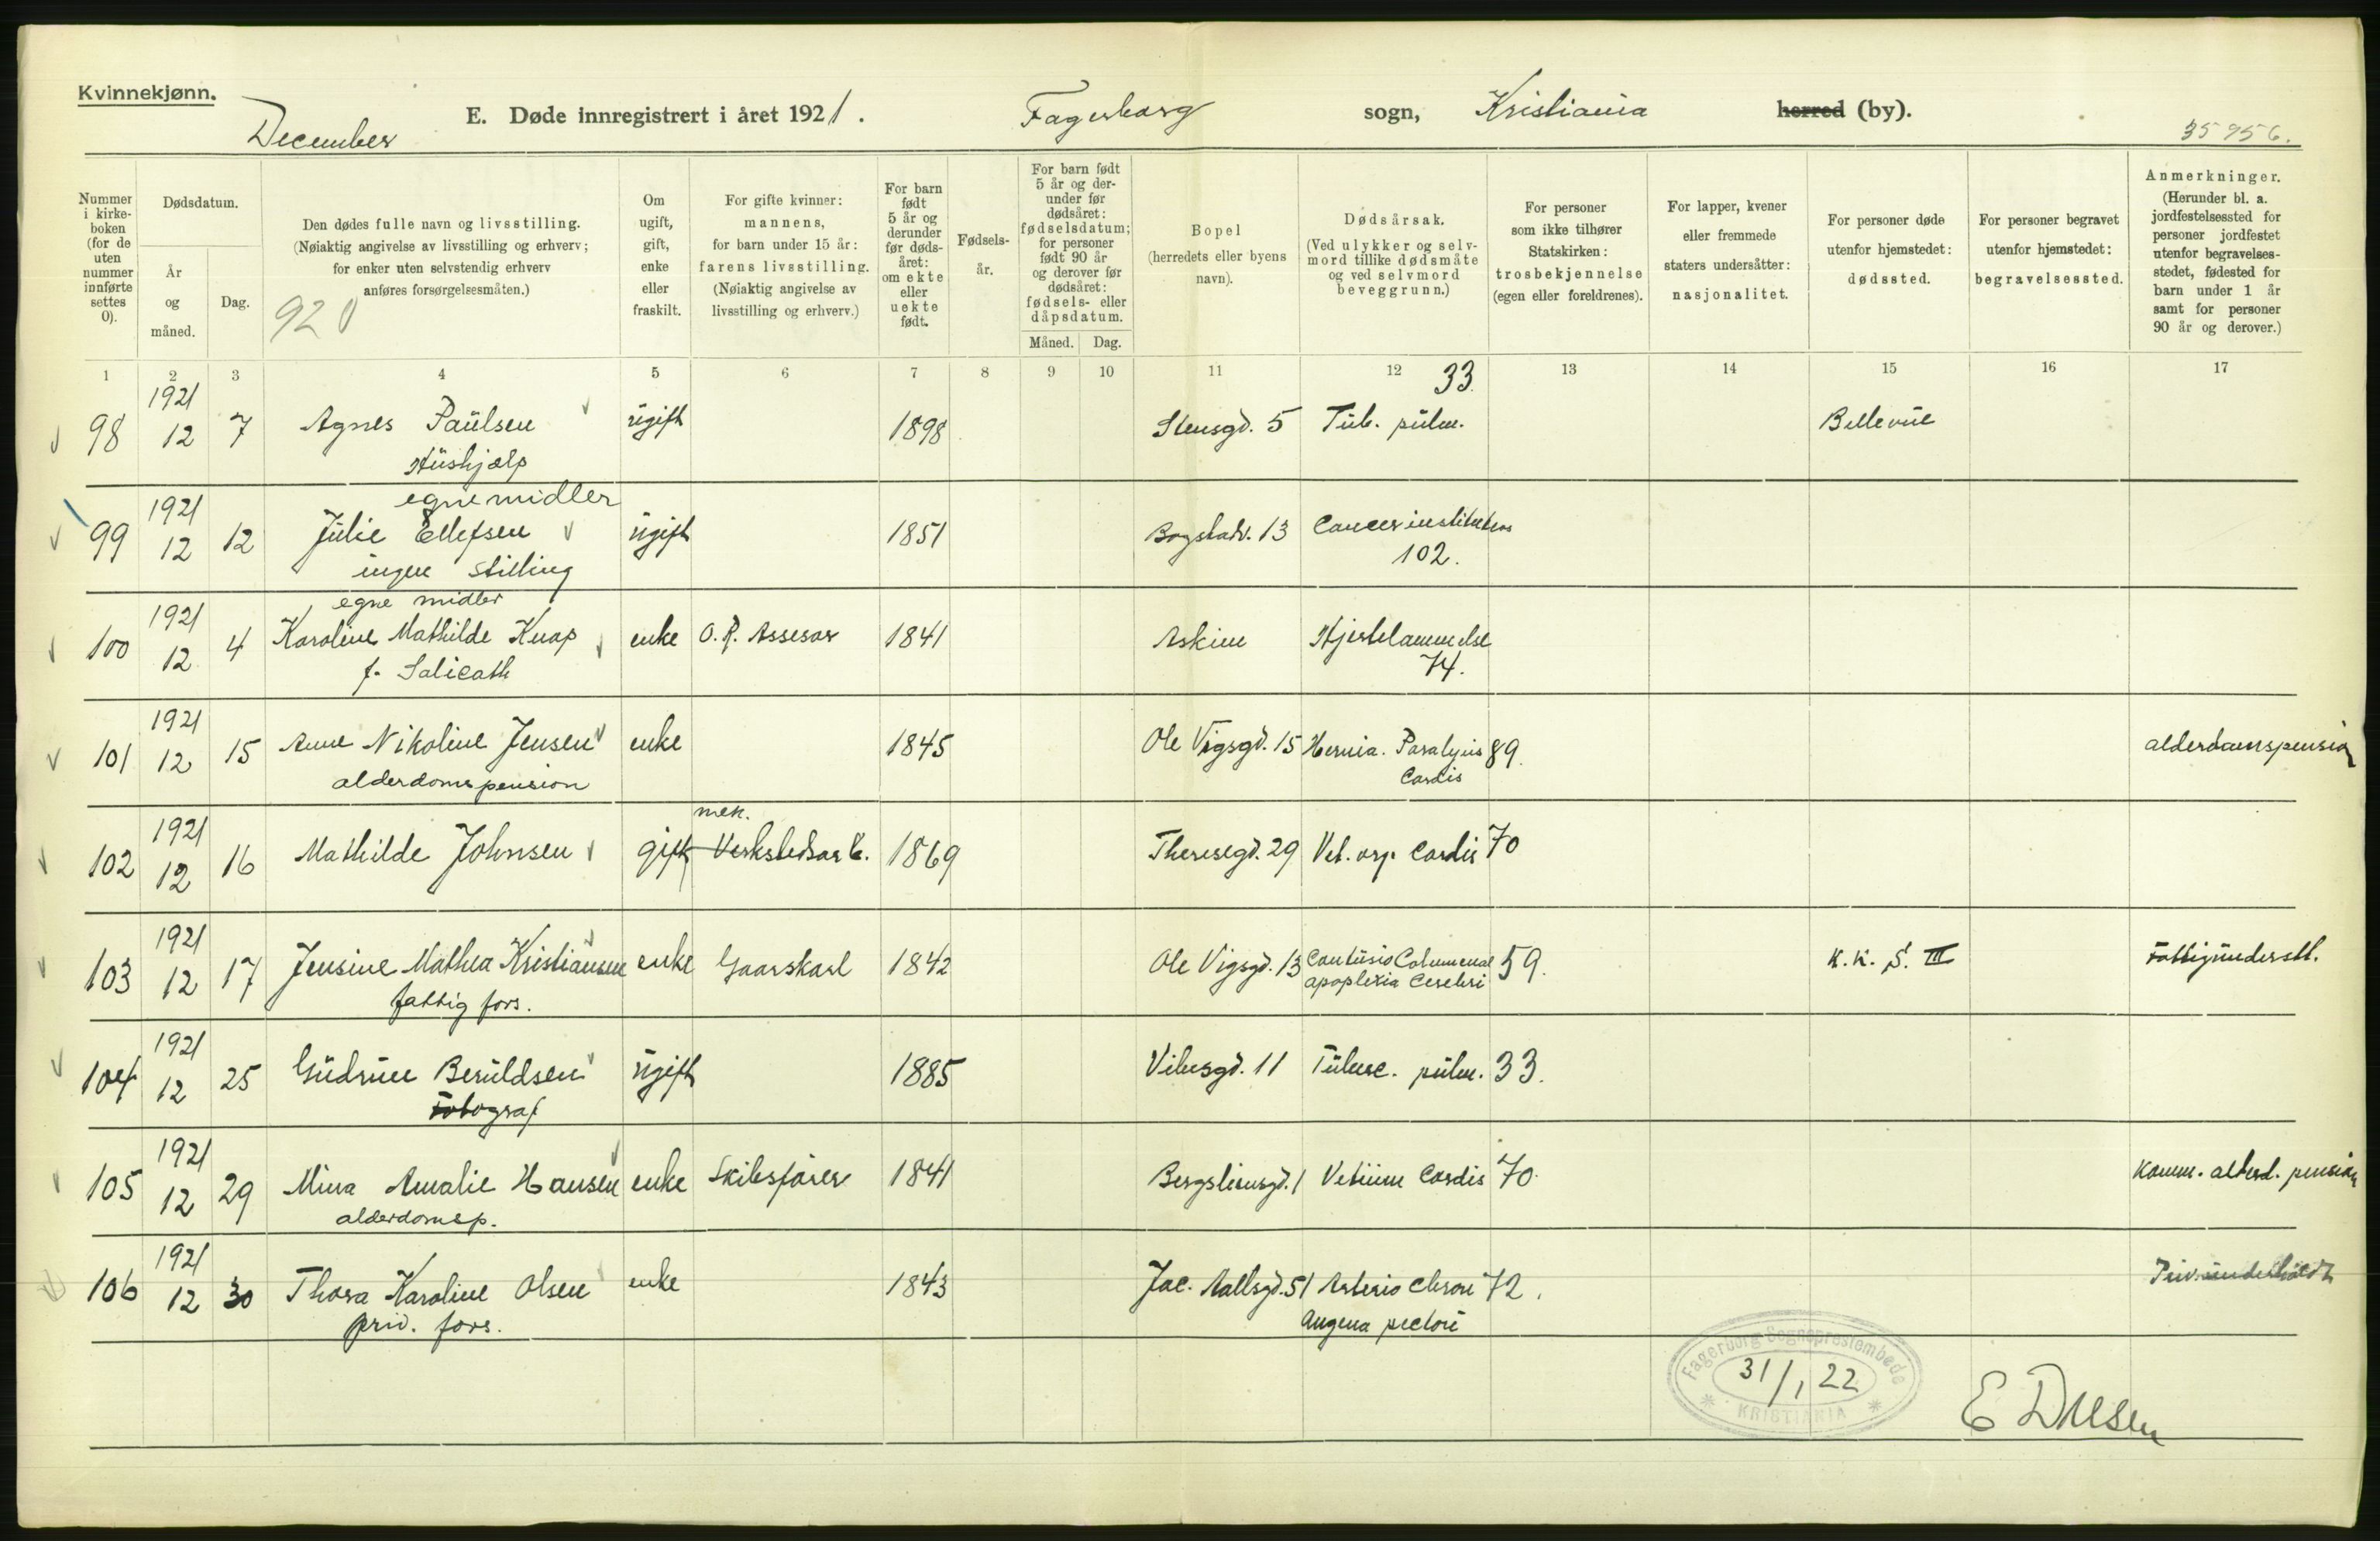 Kvinnekjønn.
E. Døde innregistrert i året 1921.
Fagerborg sogn, Kristiania herred (by).
December
35956.
Nummer i kirkeboken (for de uten nummer innførte settes 0).
Dødsdatum.
År og måned.
Dag.
Den dødes fulle navn og livsstilling.
(Nøiaktig angivelse av livsstilling og erhverv;
for enker uten selvstendig erhverv
anføres forsørgelsesmåten.)
920
Om ugift, gift, enke eller fraskilt.
For gifte kvinner:
mannens,
for barn under 15 år:
farens livsstilling.
(Nøiaktig angivelse av
livsstilling og erhverv.)
For barn født 5 år og derunder før dødsåret: om ekte eller uekte født.
Fødselsår.
For barn født 5 år og derunder før dødsåret: fødselsdatum; for personer født 90 år og derover før dødsåret: fødsels- eller dåpsdatum.
Måned. Dag.
Bopel
(herredets eller byens
navn).
Dødsårsak.
(Ved ulykker og selvmord tillike dødsmåte og ved selvmord beveggrunn.)
For personer
som ikke tilhører
Statskirken:
trosbekjennelse
(egen eller foreldrenes).
For lapper, kvener
eller fremmede
staters undersåtter:
nasjonalitet.
For personer døde
utenfor hjemstedet:
dødssted.
For personer begravet
utenfor hjemstedet:
begravelsessted.
Anmerkninger.
(Herunder bl. a.
jordfestelsessted for
personer jordfestet
utenfor begravelses-
stedet, fødested for
barn under 1 år
samt for personer
90 år og derover.)
1 2 3 4 5 6 7 8 9 10 11 12 13 14 15 16 17
1921 33.
98 12 7 Agnes Paulsen ugift 1898 Stensgd. 5 Tub. pulm. Bellevue
Hushjælp
egne midler
1921
99 12 12 Julie Ellefsen ugift 1851 Bogstadv. 13 Cancer
ingen stilling 102.
egne midler
1921
100 12 4 Karoline Mathilde Knap enke O.R. Assesor 1841 Askim Hjertelammelse
f. Salicath 74.
1921
101 12 15 Anne Nikoline Jensen enke 1845 Ole Vigsgd. 15 Hernia. Paralysis 89. alderdomspension
alderdomspension Cordis
1921 mek.
102 12 16 Mathilde Johnsen gift Verkstedsarb. 1869 Theresegd. 29 Vit. org. Cordis 70
1921
103 12 17 Jensine Mathea Kristiansen enke Gaarskarl 1842 Ole Vigsgd. 13 Contusio 59. K.K.S. III fattigunderst.
fattig fors. apoplexia Cerebri
1921
104 12 25 Gudrun Beruldsen ugift 1885 Vibesgd. 11 Tuberc. pulm. 33.
Fotograf
1921
105 12 29 Mina Amalie Hansen enke Skibsfører 1841 Bergsliensgd. 1 Vitium Cordis 70. Komm. alderd. pension
alderdomsp.
1921
106 12 30 Thora Karoline Olsen enke 1843 Jac. Aallsgd. 51 Arterio 72.
priv. fors. Angena pectori
Fagerborg Sogneprestembede
31/1 22
KRISTIANIA